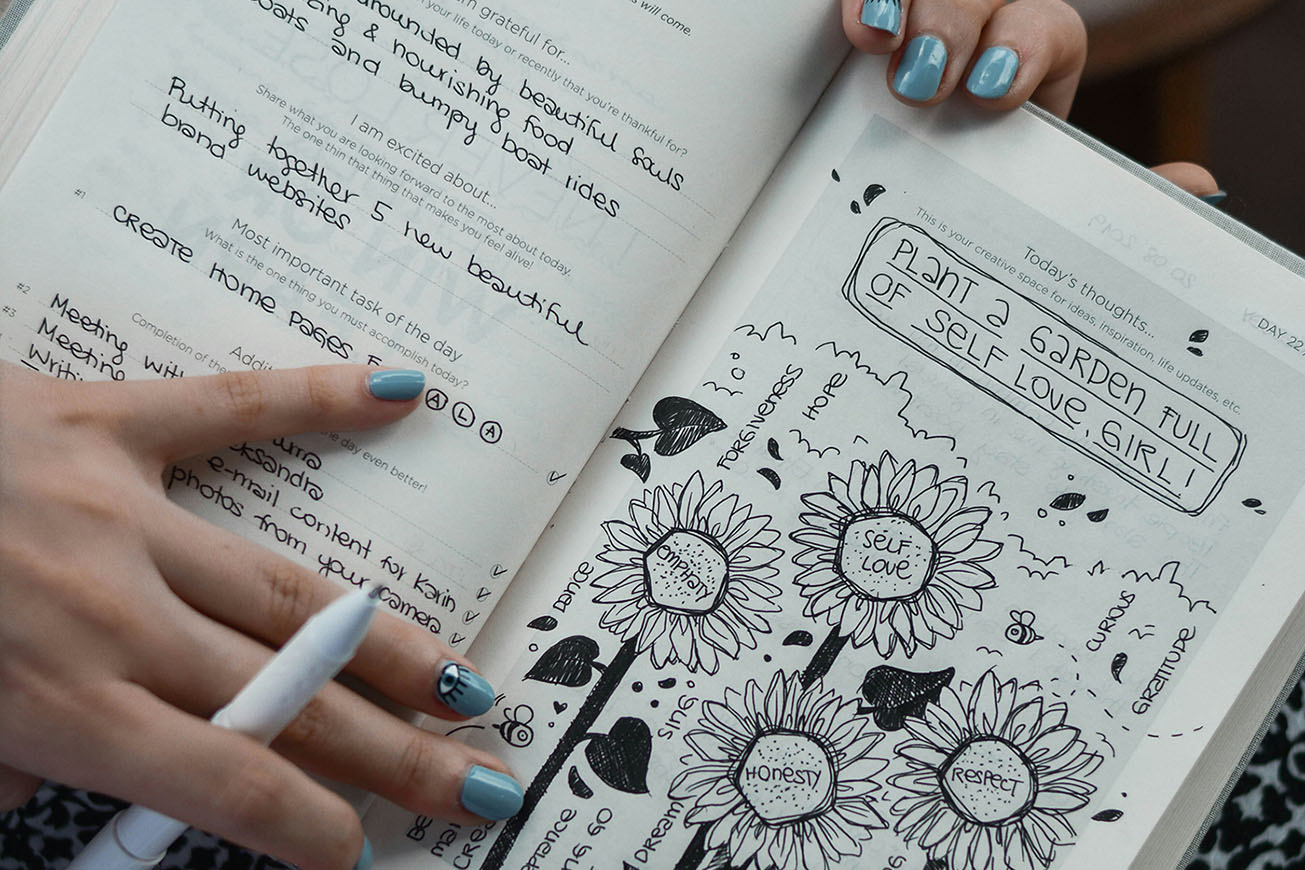 grateful for...
your life today or recently that you're thankful for?
will come.
by beautiful souls
& nourishing food
and bumpy boat rides
I am excited about...
Share what you are looking forward to the most about today.
The one thin that thing that makes you feel alive!
Putting together 5 new beautiful
brand websites
Most important task of the day
what is the one thing you must accomplish today?
#1
CREATE HOME PAGES
A L A
Completion of the
#2 Meeting with
#3 Meeting
day even better!
e-mail content for Karin
photos from your camera
DAY 22
Today's thoughts...
This is your creative space for ideas, inspiration, life updates, etc.
PLANT A GARDEN FULL
OF SELF LOVE, GIRL!
FORGIVENESS
HOPE
EMPHATY
SELF
LOVE
DANCE
CURIOUS
GRATITUDE
SING
HONESTY
RESPECT
DREAM
GO